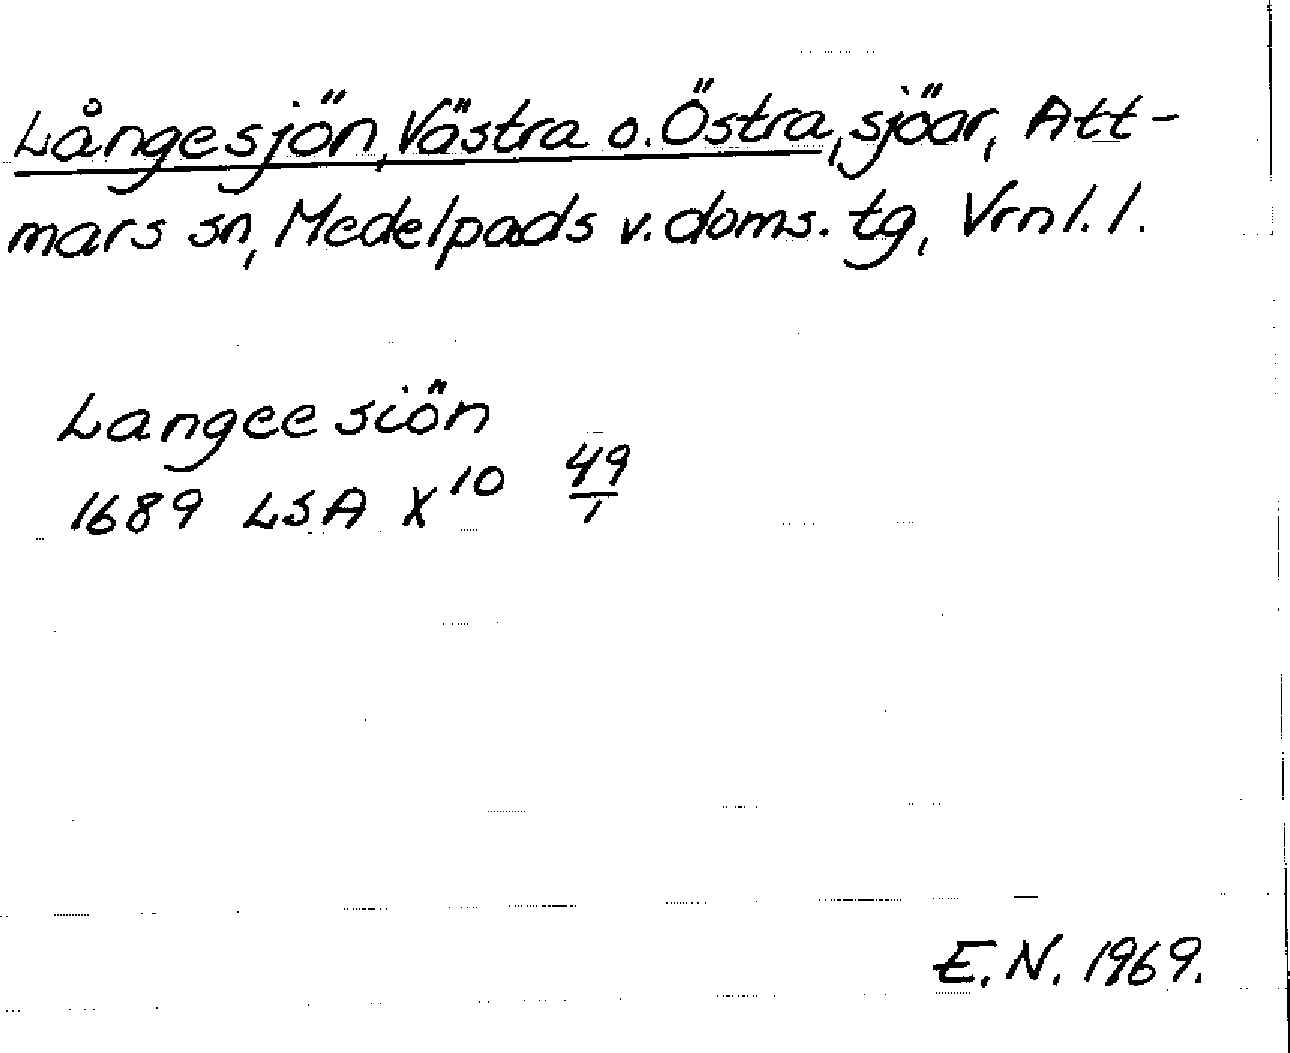 Långesjön, Västra o. Östra, sjöar, Att-
mars sn, Medelpads v. doms. tg, Vrnl. l.
Langee siön
1689 LSA X¹⁰ 49/1
E. N. 1969.